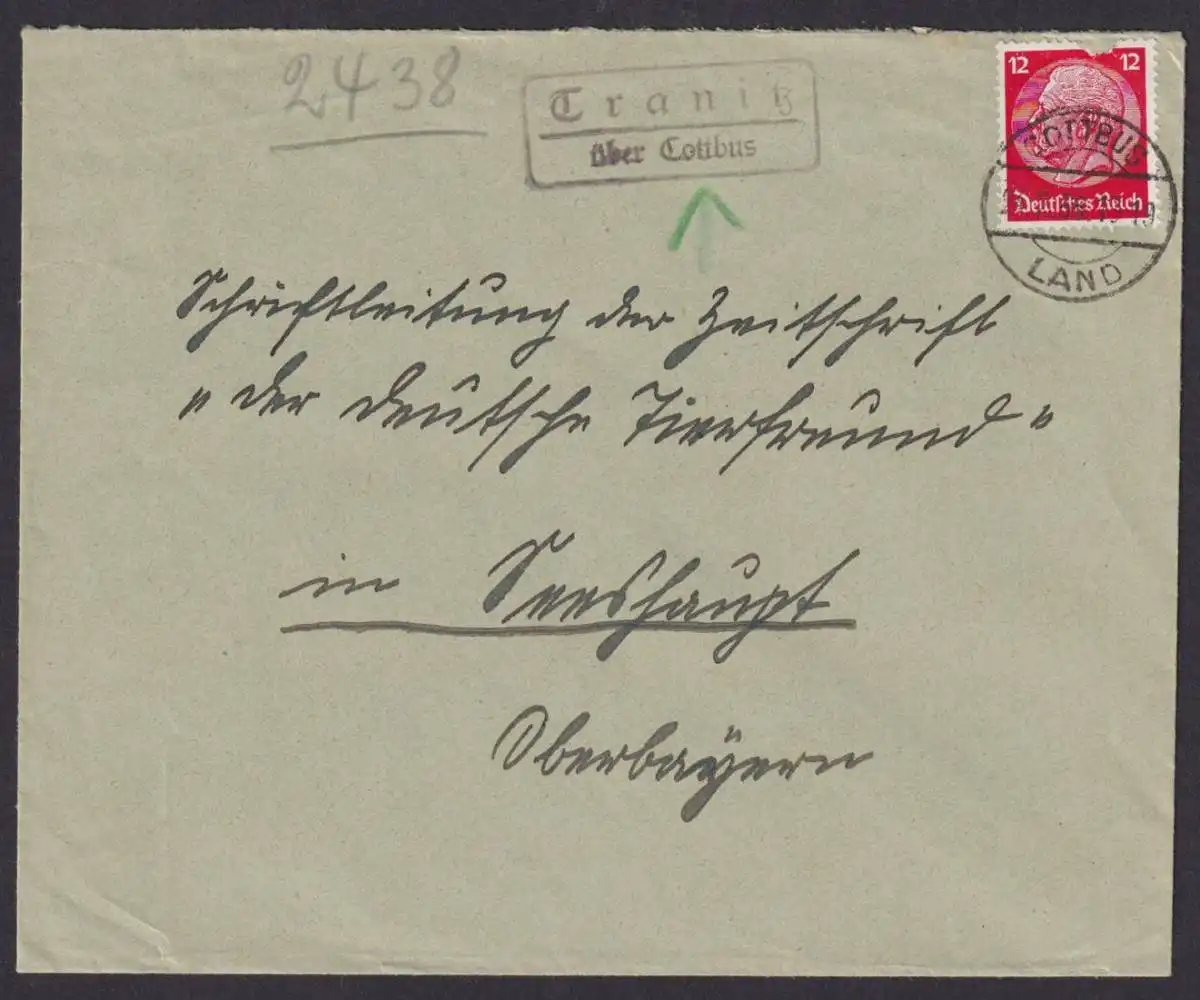 2438
Tranitz
über Cottbus
12 12
Deutsches Reich
COTTBUS
LAND
Schriftleitung der Zeitschrift
„der deutsche Tierfreund"
in Seeshaupt
Oberbayern